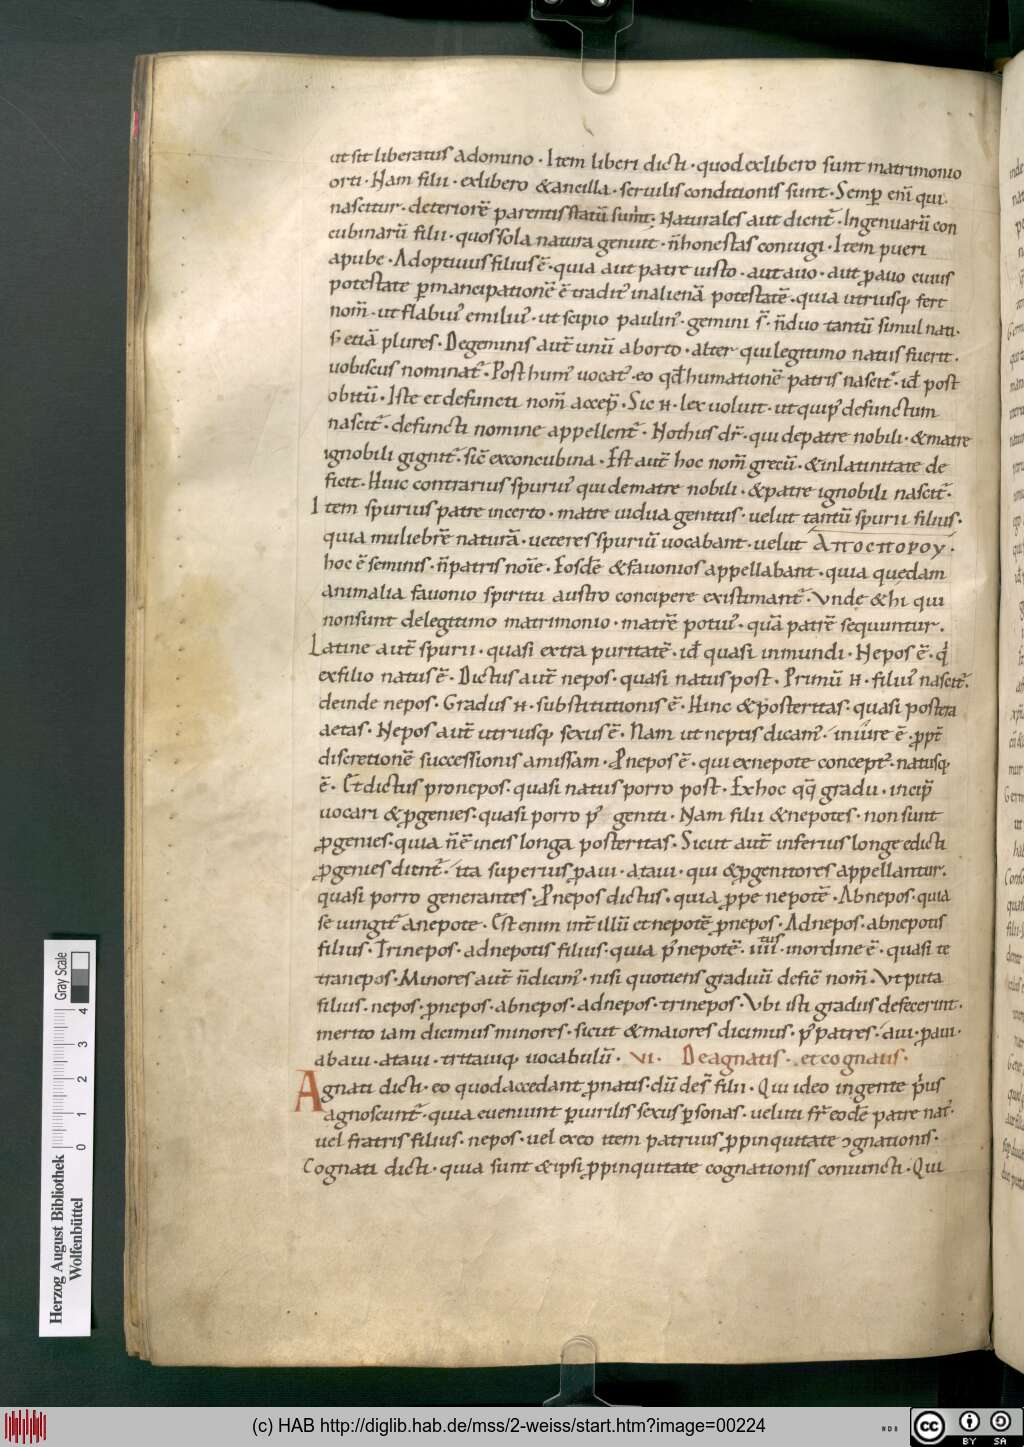 ut sit liberatus adomino · Item liberi dicti · quod exlibero sunt matrimonio
orti · Nam filii · exlibero &ancilla · seruilis conditionis sunt · Semp̄ enī qui
nascitur · deteriorē parentis statū sumit · Naturales aut̄ dicunt̄ · Ingenuarū con
cubinarū filii · quos sola natura genuit · n̄ honestas coniugi · Item pueri
apube · Adoptiuus filius ē · quia aut patre iusto · aut auo · aut ꝓauo cuius
potestate ꝑmancipationē ē traditꝰ inalienā potestatē · quia utriusq; fert
nom̄ · ut flabuiꝰ emiliuꝰ · ut scipio paulinꝰ · gemini s̄ · n̄ duo tantū simul nati ·
s; etiā plures · Degeminis aut̄ unū aborto · alter qui legitimo natus fuerit ·
uobiscus nominat̄ · Post humꝰ uocat̄ · eo qd̄ humationē patris nascit̄ · id̄ post
obitū · Iste et defuncti nom̄ accep̄ · Sic H · lex uoluit · ut quip̄ defunctum
nascit̄ · defuncti nomine appellent̄ · Nothus dr̄ · qui depatre nobili · &matre
ignobili gignit̄ · sic̄ exconcubina · Est aut̄ hoc nom̄ grecū · &inlatinitate de
ficit · Huic contrarius spuriuꝰ qui dematre nobili · &patre ignobili nascit̄ ·
Item spurius patre incerto · matre uidua genitus · uelut tantū spurii filius ·
quia muliebrē naturā · ueteres spuriū uocabant · uelut ΑΠΟCΠΟΡΟΥ ·
hoc ē seminis · n̄ patris noīe · Eosdē &fauonios appellabant · quia quedam
animalia fauonio spiritu austro concipere existimant̄ · Vnde &hi qui
nonsunt delegitimo matrimonio · matrē potiuꝰ · quā patrē sequuntur ·
Latine aut̄ spurii · quasi extra puritatē · id̄ quasi inmundi · Nepos ē · q̇
exfilio natus ē · Dictus aut̄ nepos · quasi natus post · Primū H · filiuꝰ nascit̄ ·
deinde nepos · Gradus H · substitutionis ē · Hinc &posteritas · quasi postera
aetas · Nepos aut̄ utriusq; sexus ē · Nam ut neptis dicamꝰ · iniure ē · ꝓpt̄
discretionē successionis amissam · Ꝓnepos ē · qui exnepote conceptꝰ · natusq;
ē · Et dictus pronepos · quasi natus porro post · Exhoc qq̄ gradu · incip̄
uocari &ꝓgenies · quasi porro pꝰ geniti · Nam filii &nepotes · non sunt
ꝓgenies · quia n̄ ē ineis longa posteritas · Sicut aut̄ inferius longe edicti
ꝓgenies dicunt̄ · ita superius ꝓaui · ataui · qui &ꝓgenitores appellantur ·
quasi porro generantes · Ꝓnepos dictus · quia ꝓpe nepotē · Abnepos · quia
se iungit̄ anepote · Est enim int̄ illū et nepotē ꝓnepos · Adnepos · abnepotis
filius · Trinepos · adnepotis filius · quia pꝰ nepotē · iiiitus · inordine ē · quasi te
tranepos · Minores aut̄ n̄ dicimꝰ · nisi quotiens graduū defic̄ nom̄ · Vt puta
filius · nepos · ꝓnepos · abnepos · adnepos · trinepos · Vbi isti gradus defecerint ·
merito iam dicimus minores · sicut &maiores dicimus · pꝰ patres · aui · ꝓaui ·
abaui · ataui · tritauiq; uocabulū · VI · Deagnatis · et cognatis ·
Agnati dicti · eo quod accedant ꝓnatis · dū des̄ filii · Qui ideo ingente p̄us
agnoscunt̄ · quia eueniunt ꝑuirilis sexus ꝑsonas · ueluti fr̄ eodē patre nat̄ ·
uel fratris filius · nepos · uel exeo item patruus ꝓpinquitate ɔgnationis ·
Cognati dicti · quia sunt &ipsi ꝓpinquitate cognationis conuincti · Qui
Gray Scale
0 1 2 3 4
Herzog August Bibliothek
Wolfenbüttel
(c) HAB http://diglib.hab.de/mss/2-weiss/start.htm?image=00224
cc BY SA